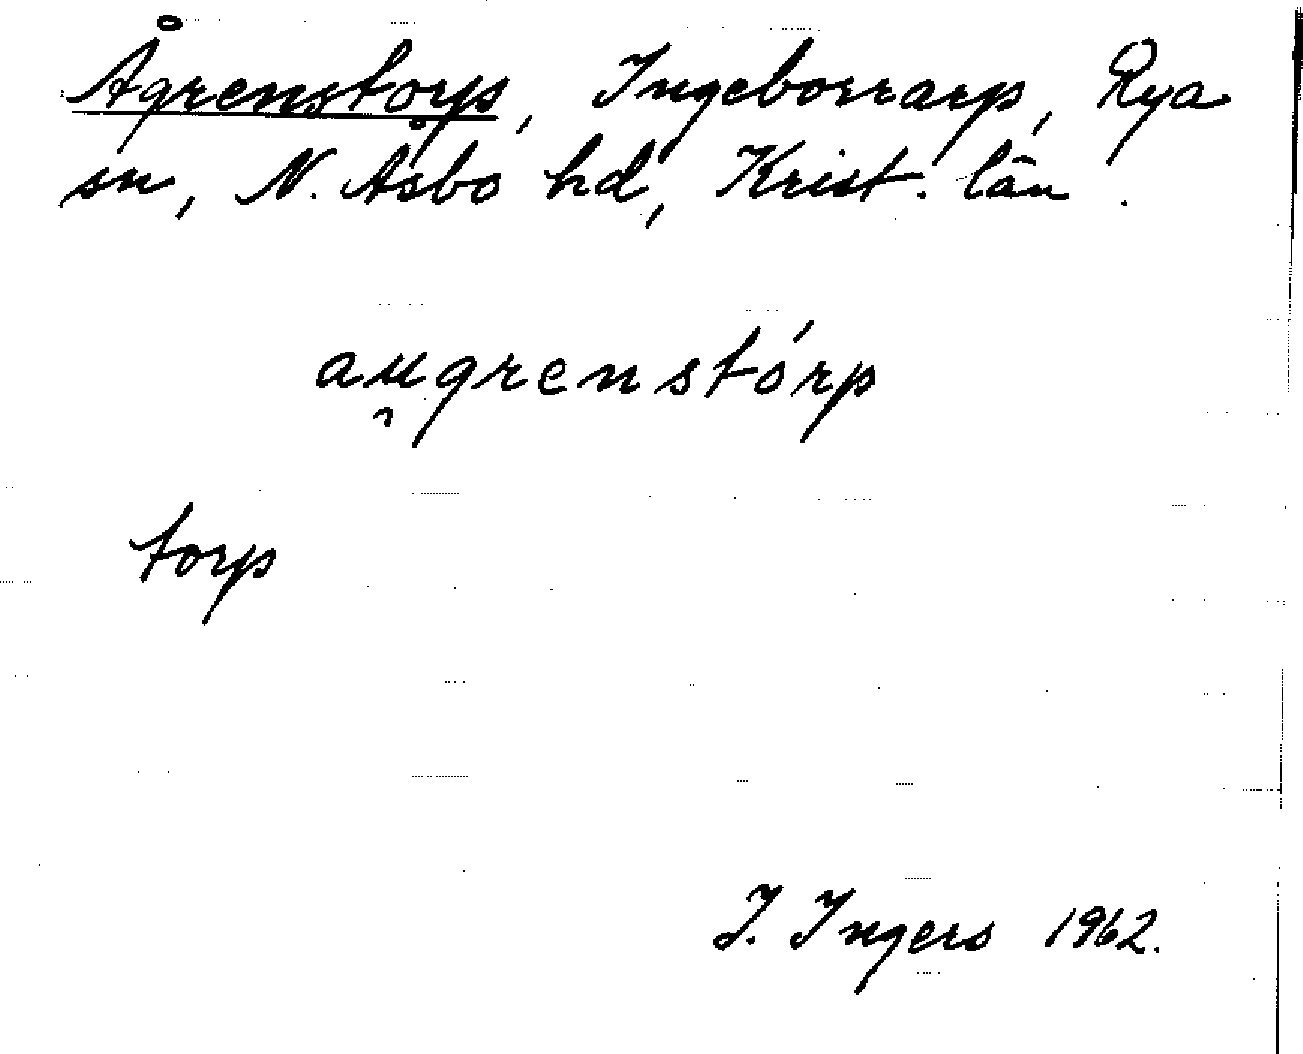 Ågrenstorp, Ingeborrarp, Rya
sn, N. Åsbo hd, Krist. län.
au̯grenstórp
torp
I. Ingers 1962.